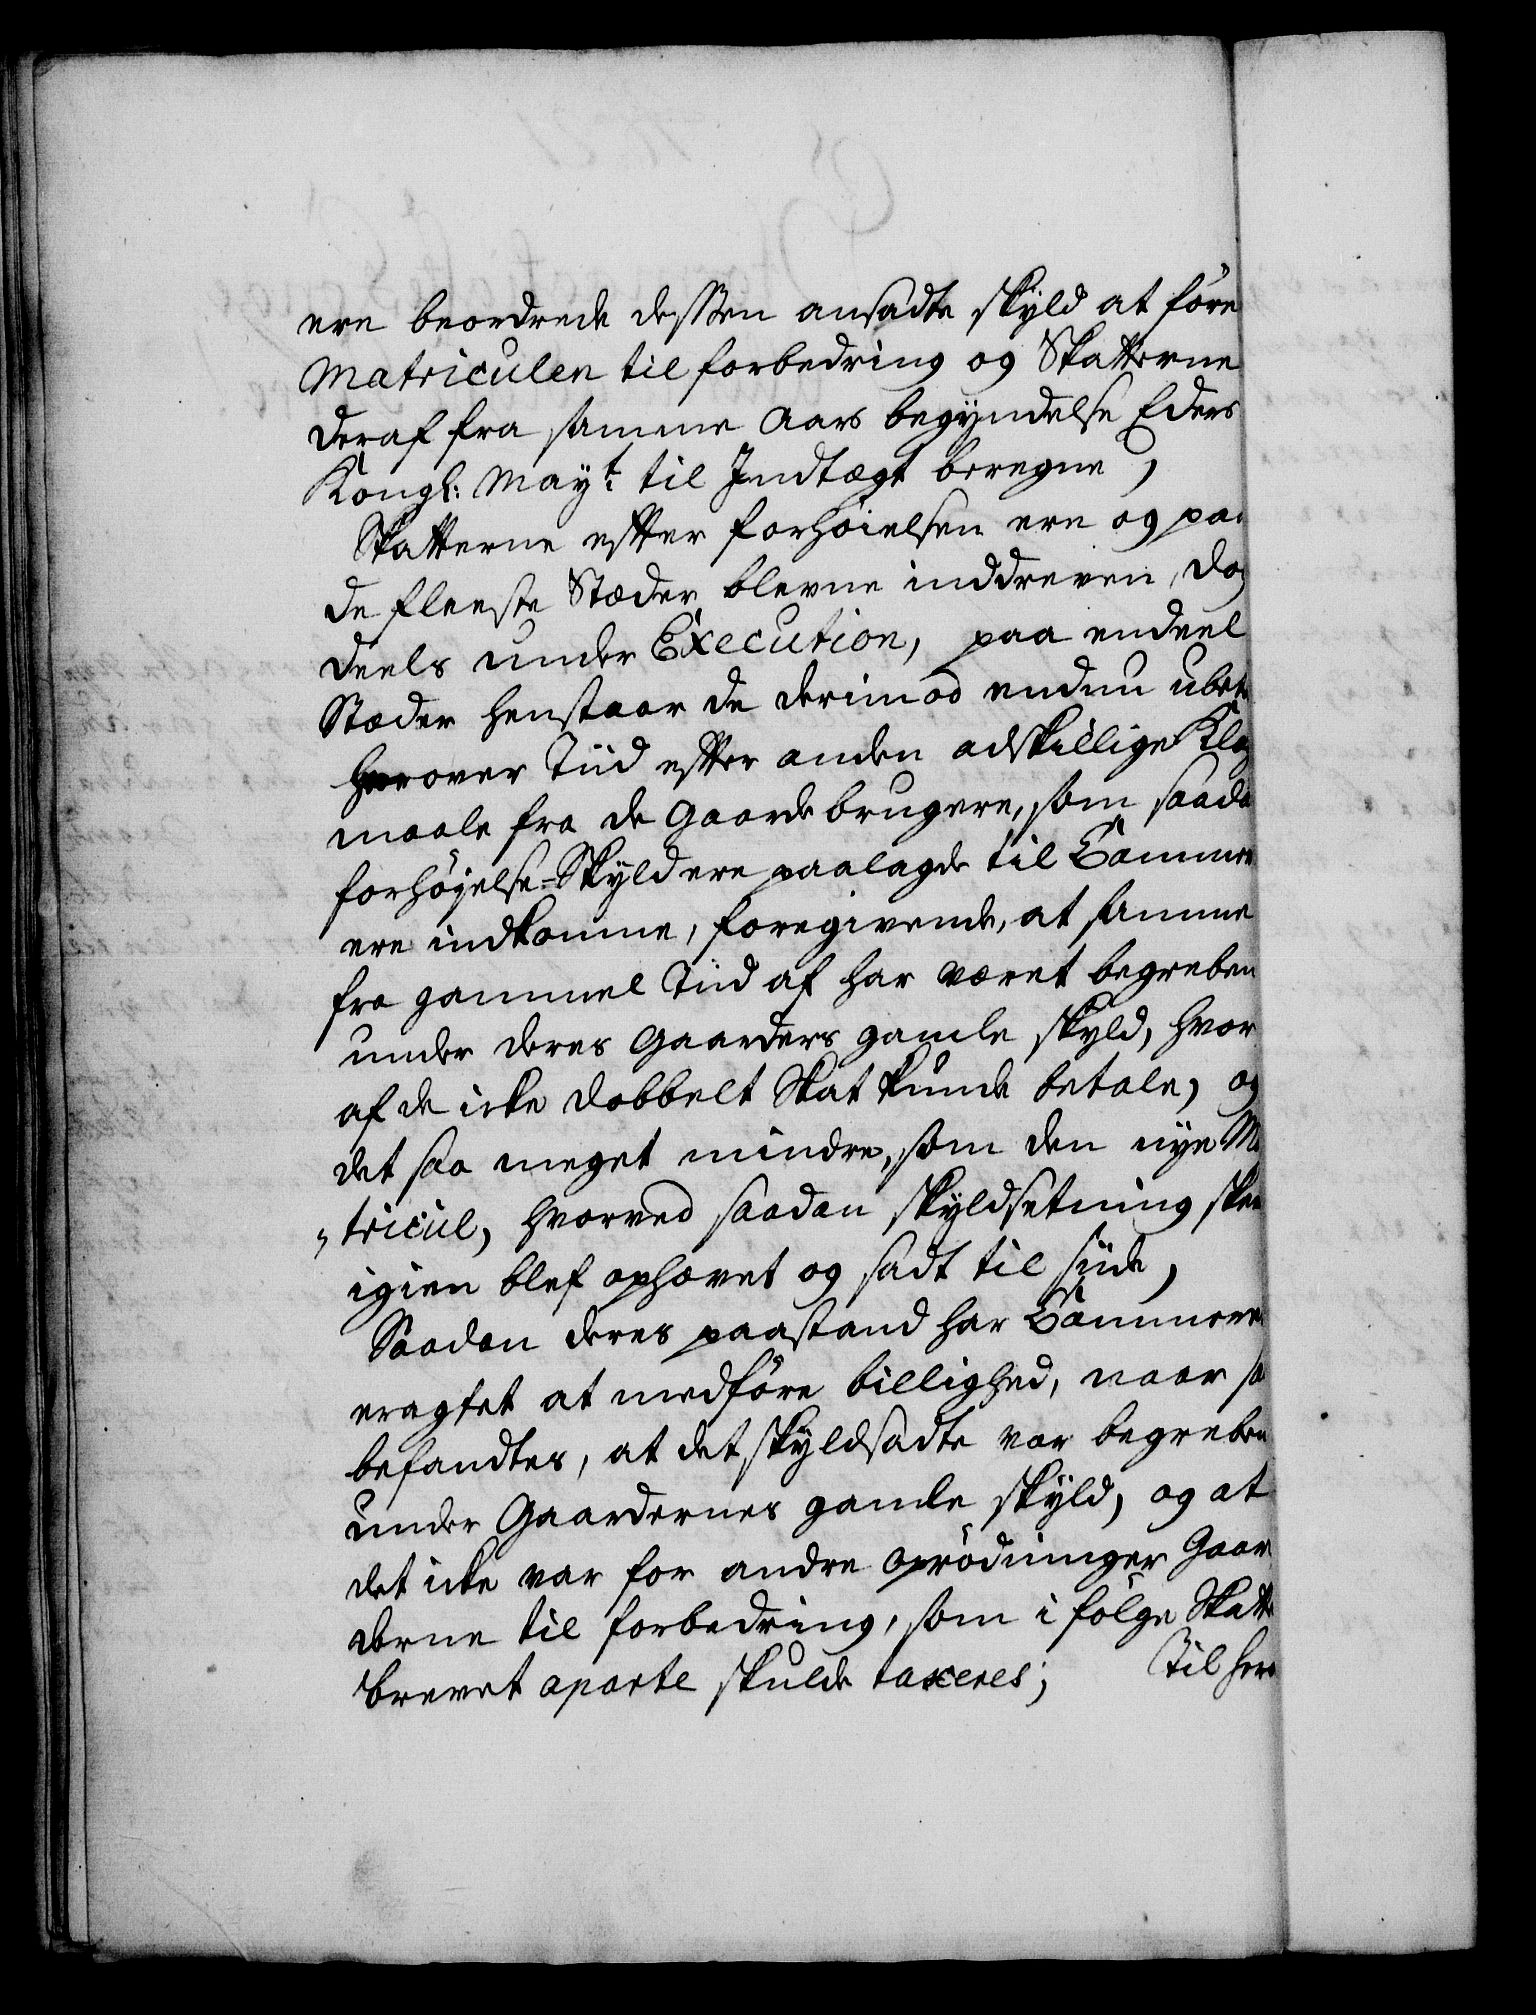 ere beordrede dessen ansadte skyld at føre
Matriculen til forbedring og Skatterne
deraf fra samme Aars begyndelse Eders
Kongl: Mayt: til Indtægt beregne,
Skatterne effter forhöielsen ere og paa
de fleeste Stæder blevne inddreven, dog
deels under Execution, paa endeel
Stæder henstaar de derimod endnu ubet
Herover Tiid effter anden adskillige Klag
maale fra de Gaarde brugere, som saada
forhøyelse-Skyld ere paalagde til Cammer
ere indkomme, foregivende, at samme
fra gammel Tiid af har været begreben
under deres Gaarders gamle skyld, hvor
af de icke dobbelt Skat kunde betale, og
det saa meget mindre, som den nye Ma
„tricul, hvorved saadan skyldsetning skee
igien blef ophævet og sadt til siide,
Saadan deres paastand har Cammere
eragtet at medføre billighed, naar sa
befandtes, at det skyldsadte var begreben
under Gaardernes gamle skyld, og at
det icke var for andre oprødninger Gaar
derne til forbedring, som i følge Skatte
brevet aparte skulde taxeres; Til her